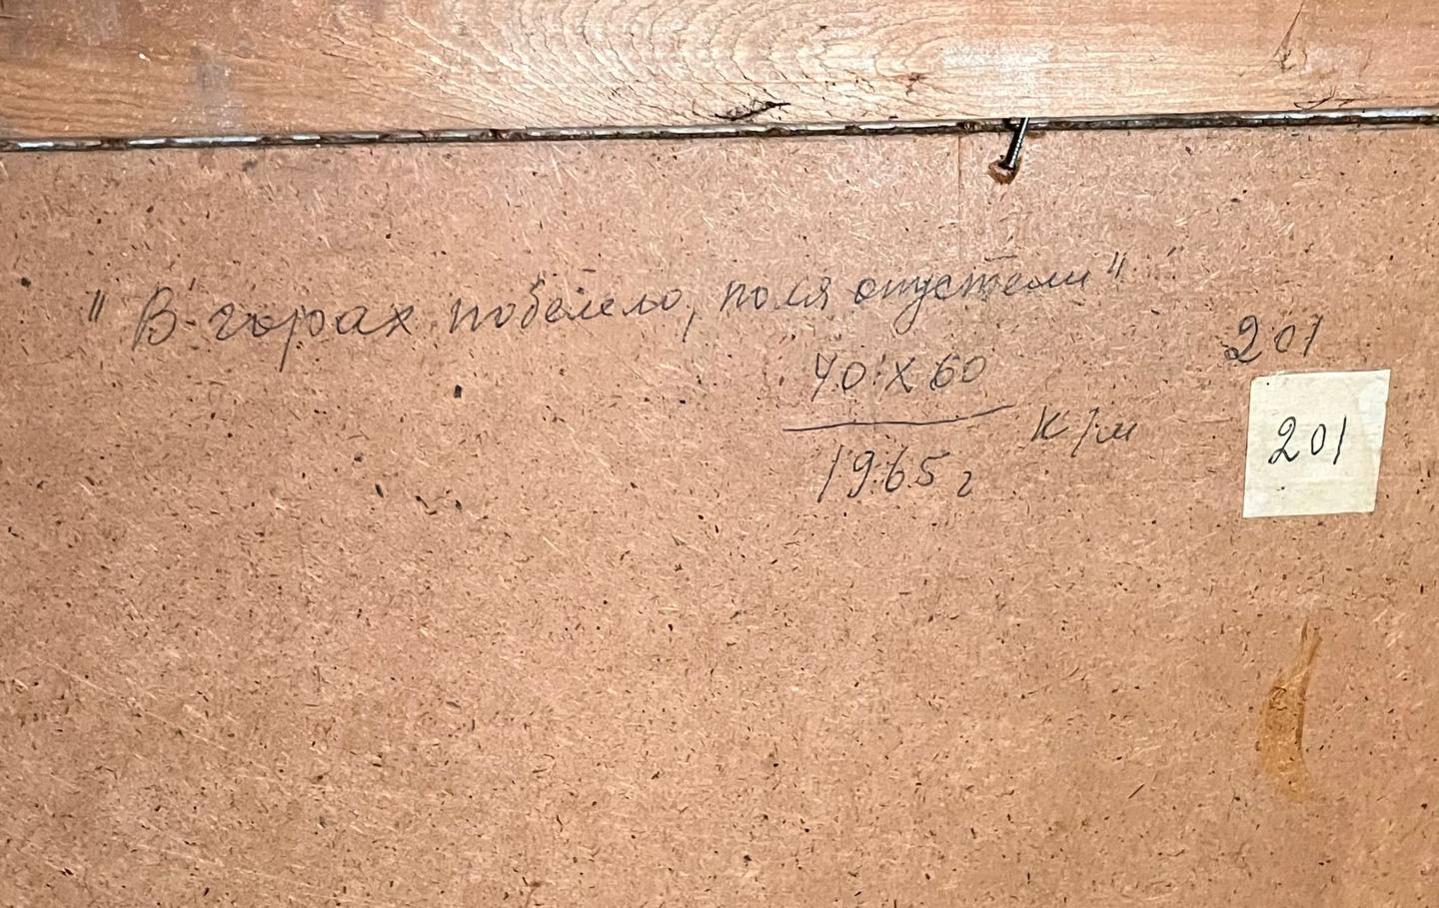 " В горах побелело, поля опустели "
201
40 х 60
к/м
1965 г
201